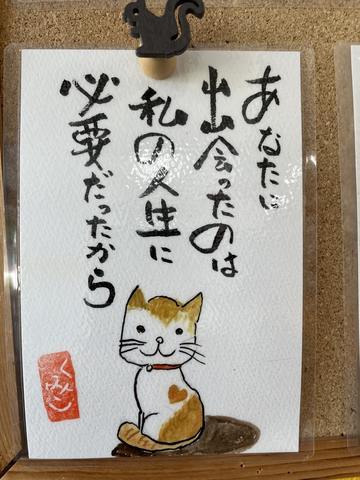 あなたに
出会ったのは
私の人生に
必要だったから
くみん